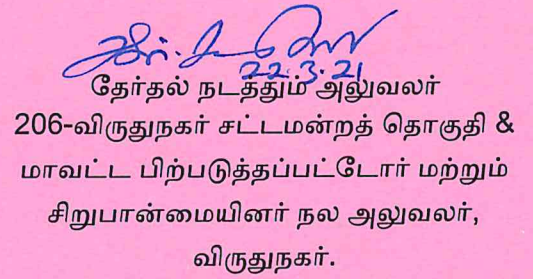 22.3.21
தேர்தல் நடத்தும் அலுவலர்
206-விருதுநகர் சட்டமன்றத் தொகுதி &
மாவட்ட பிற்படுத்தப்பட்டோர் மற்றும்
சிறுபான்மையினர் நல அலுவலர்,
விருதுநகர்.